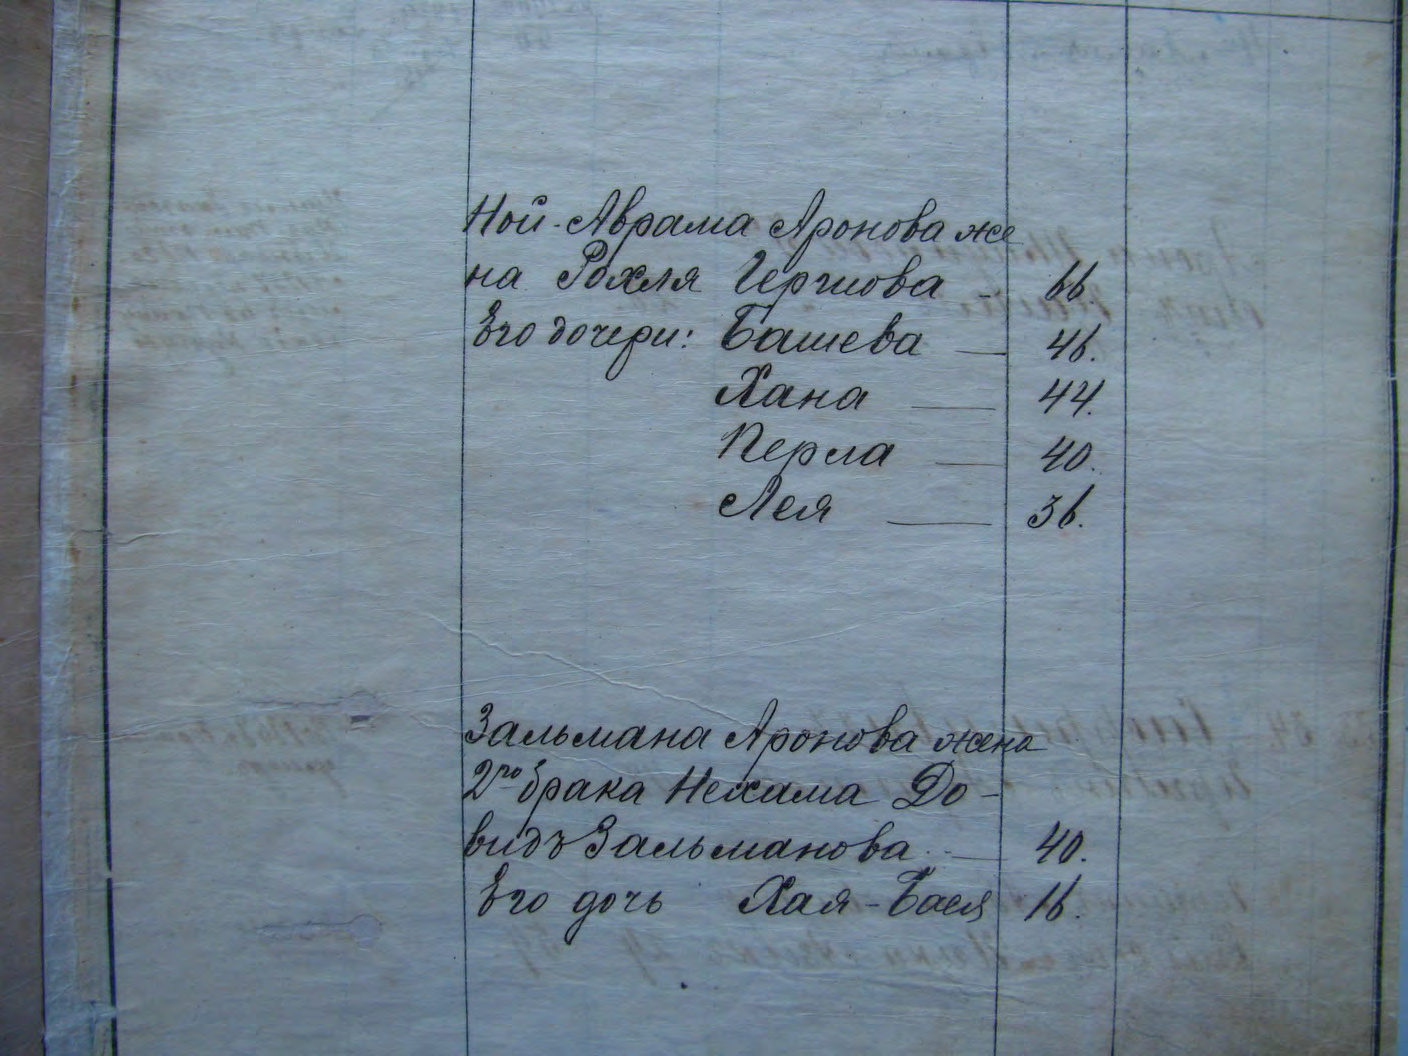 Ной-Аврама Аронова же
на Рохля Гершова - 66
Его дочери: Башева — 46.
Хана — 44.
Перла — 40.
Лея — 36.
Зальмана Аронова жена
2го брака Нехама До-
видъ Зальманова — 40.
Его дочь Хая-Бася 16.